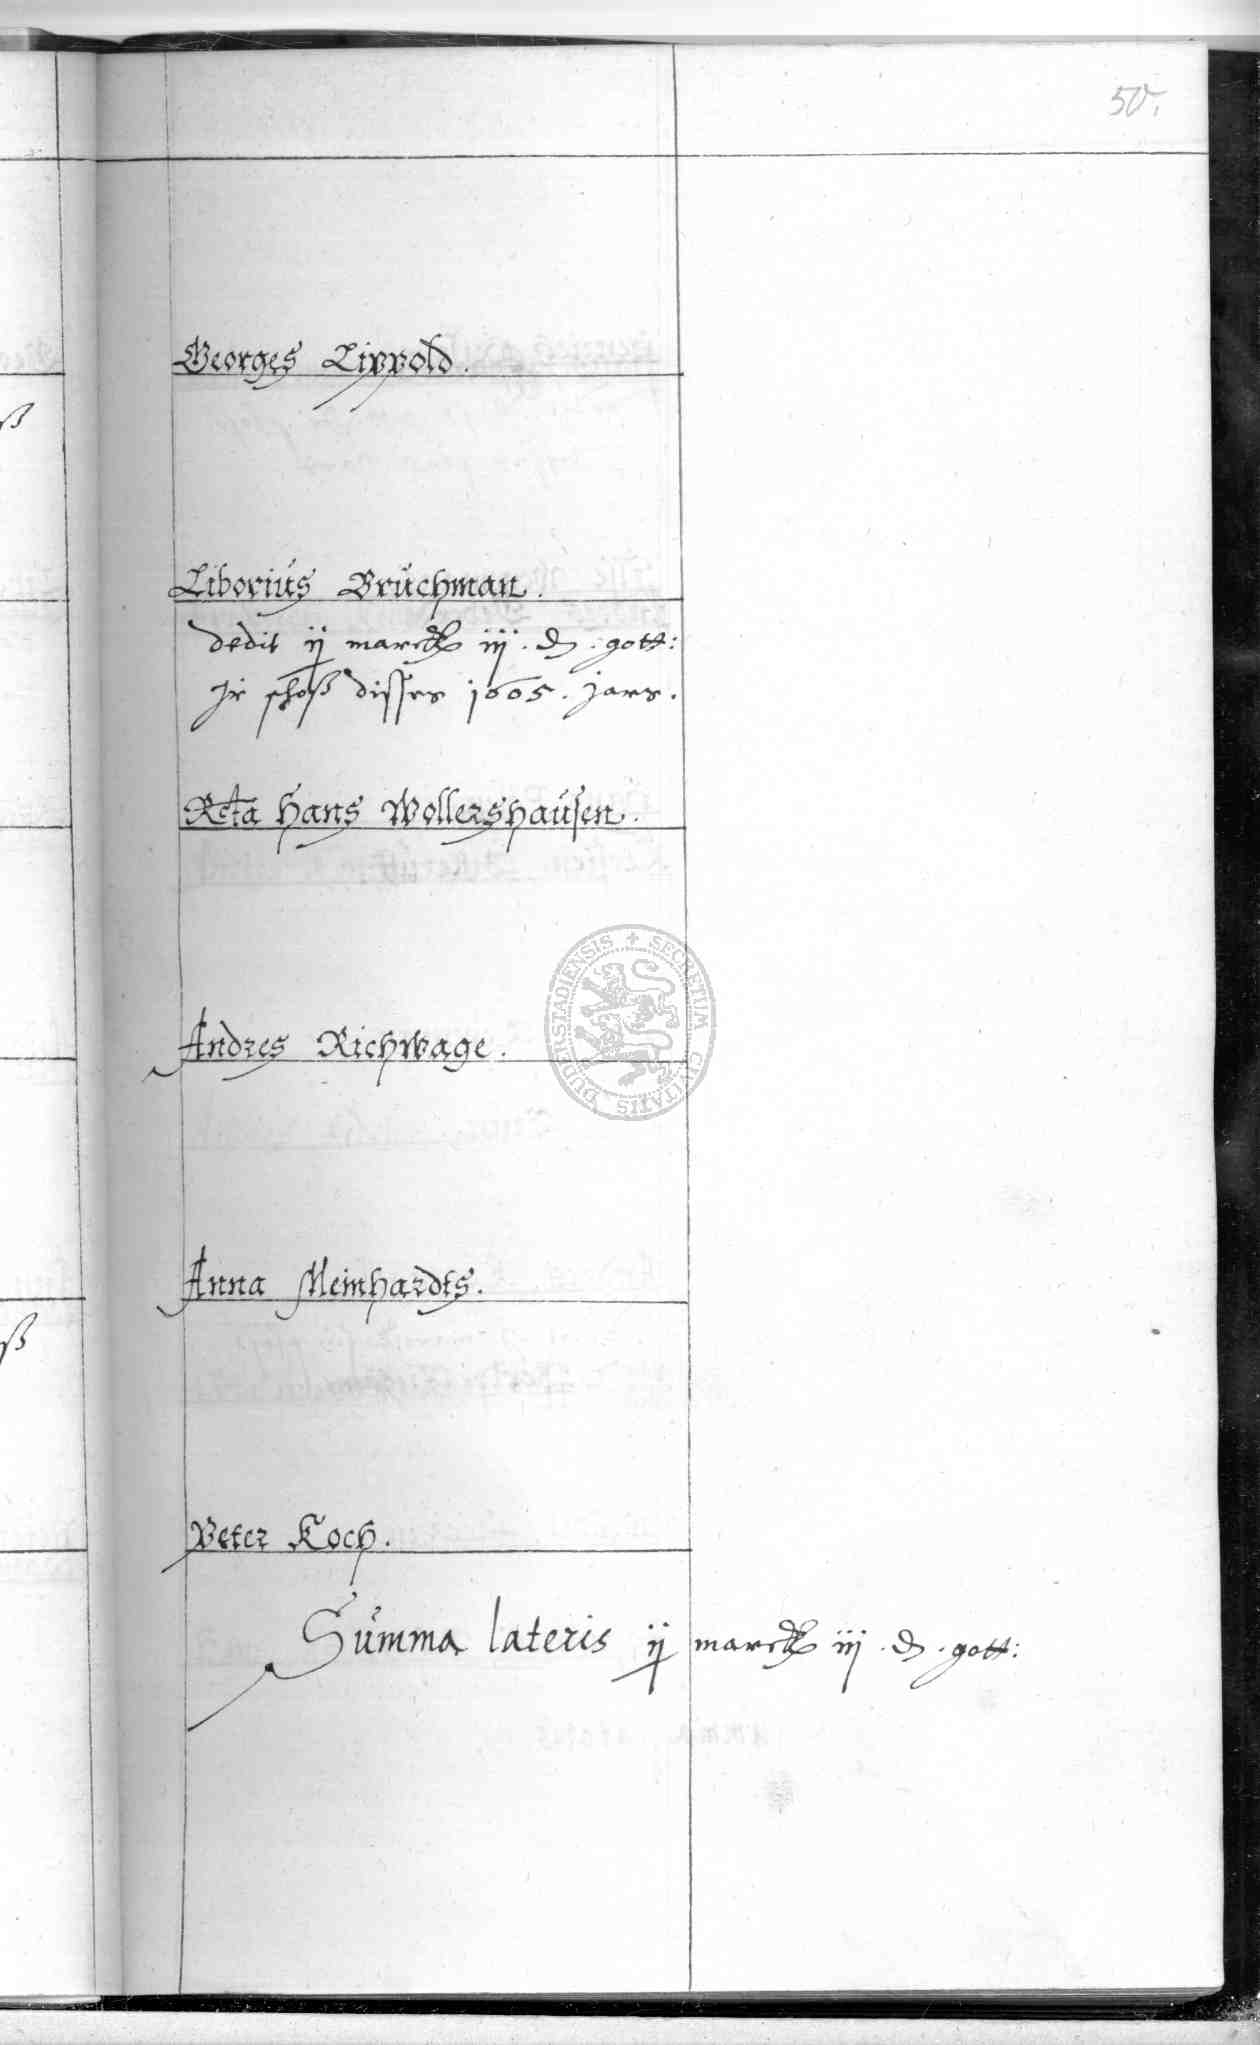 50.
Georges Lippold.
Liborius Bruchman.
dedit ij marck iij. d. gott:
Ir schoß disses 1605. jars.
Rcta Hans Wollershausen.
Andres Richwage.
Anna Meinhardts.
Peter Koch.
Summa lateris ij marck iij. d. gott:
SECRETUM CIVITATIS DUDERSTADIENSIS